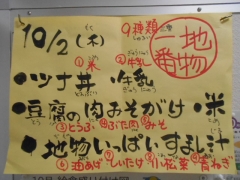 10/2(木) 9種類 地物一番
①米 ②牛乳
・ツナ丼 ・牛乳
・豆腐の肉みそがけ ・米
③とうふ ④ぶた肉 ⑤みそ
・地物いっぱいすまし汁
⑥油あげ ⑦しいたけ ⑧小松菜 ⑨青ねぎ